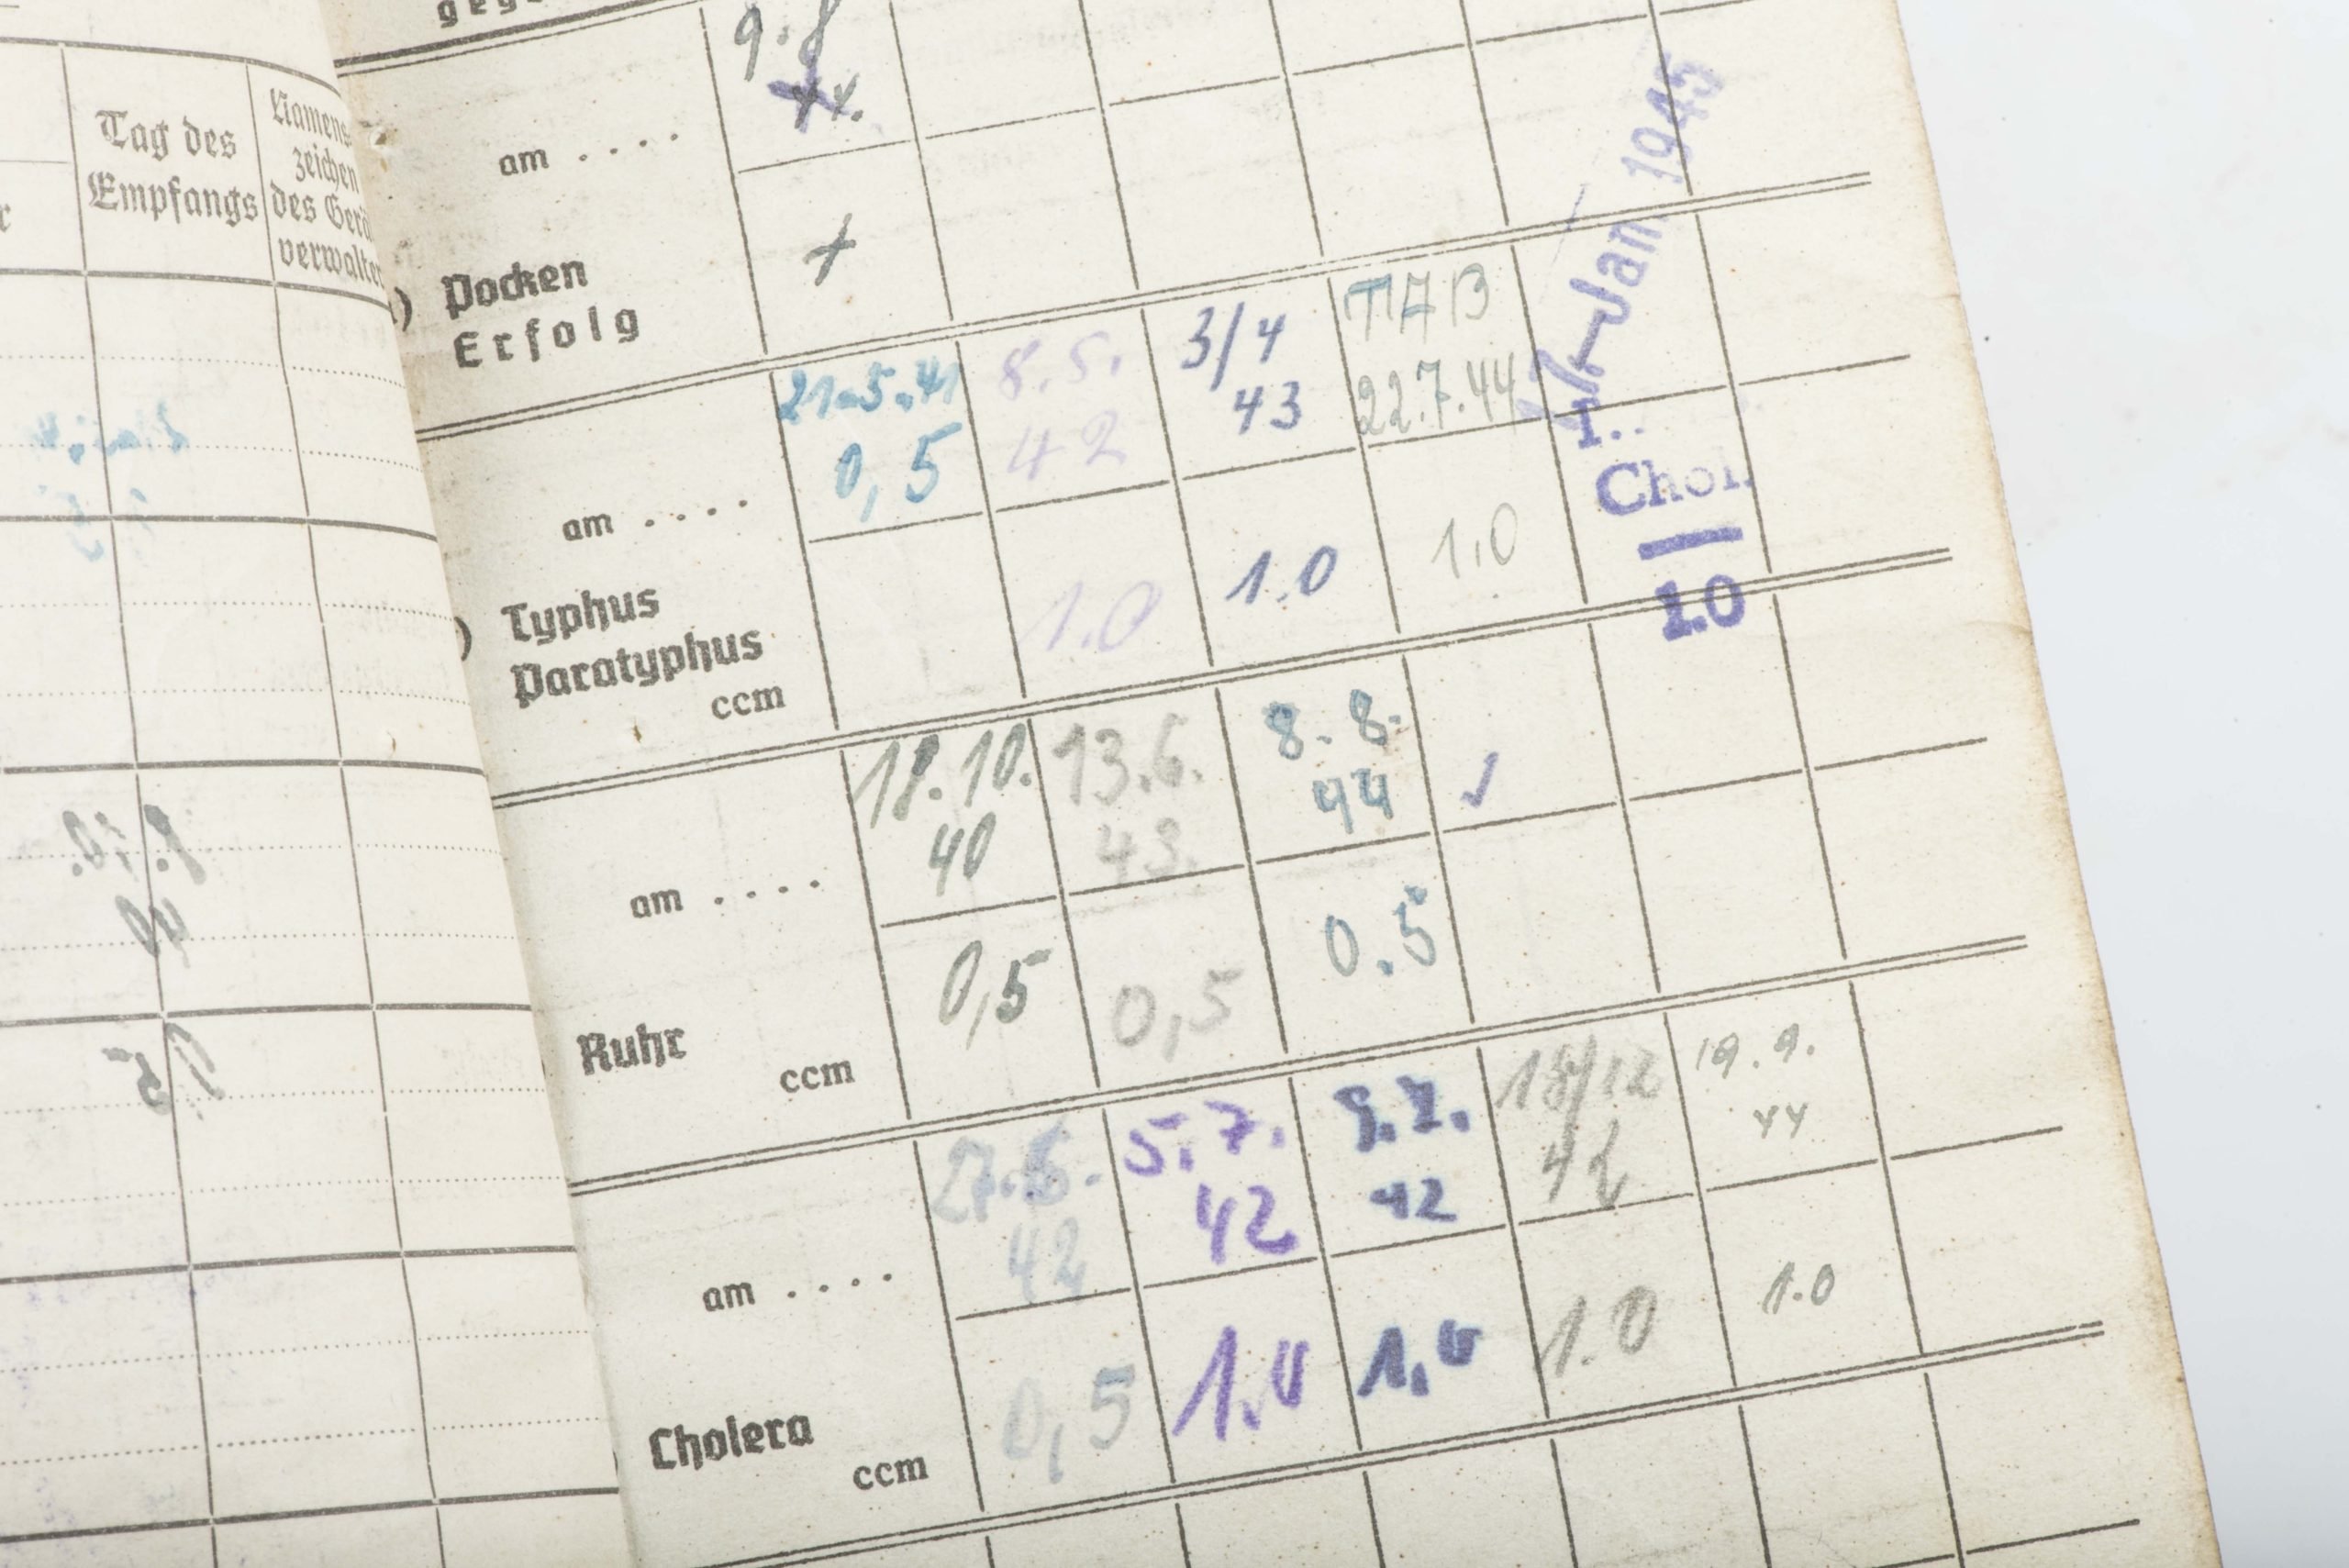 Tag des
Empfangs
Namens-
zeichen
des Gerä
verwalter
9.8
am . . . .
Pocken
Erfolg
+
21.5.41
0,5
8.5.
42
3/4
43
TAB
22.7.44
Jan. 1945
am . . . .
Typhus
Paratyphus
ccm
1.0
1.0
1.0
Chol.
1.0
18.10.
40
13.6.
43.
8.8.
44
am . . . .
Ruhr
ccm
0,5
0,5
0.5
42
5.7.
42
42
18/12
42
19.9.
44
am . . . .
Cholera
ccm
0,5
1.0
1,0
1.0
1.0